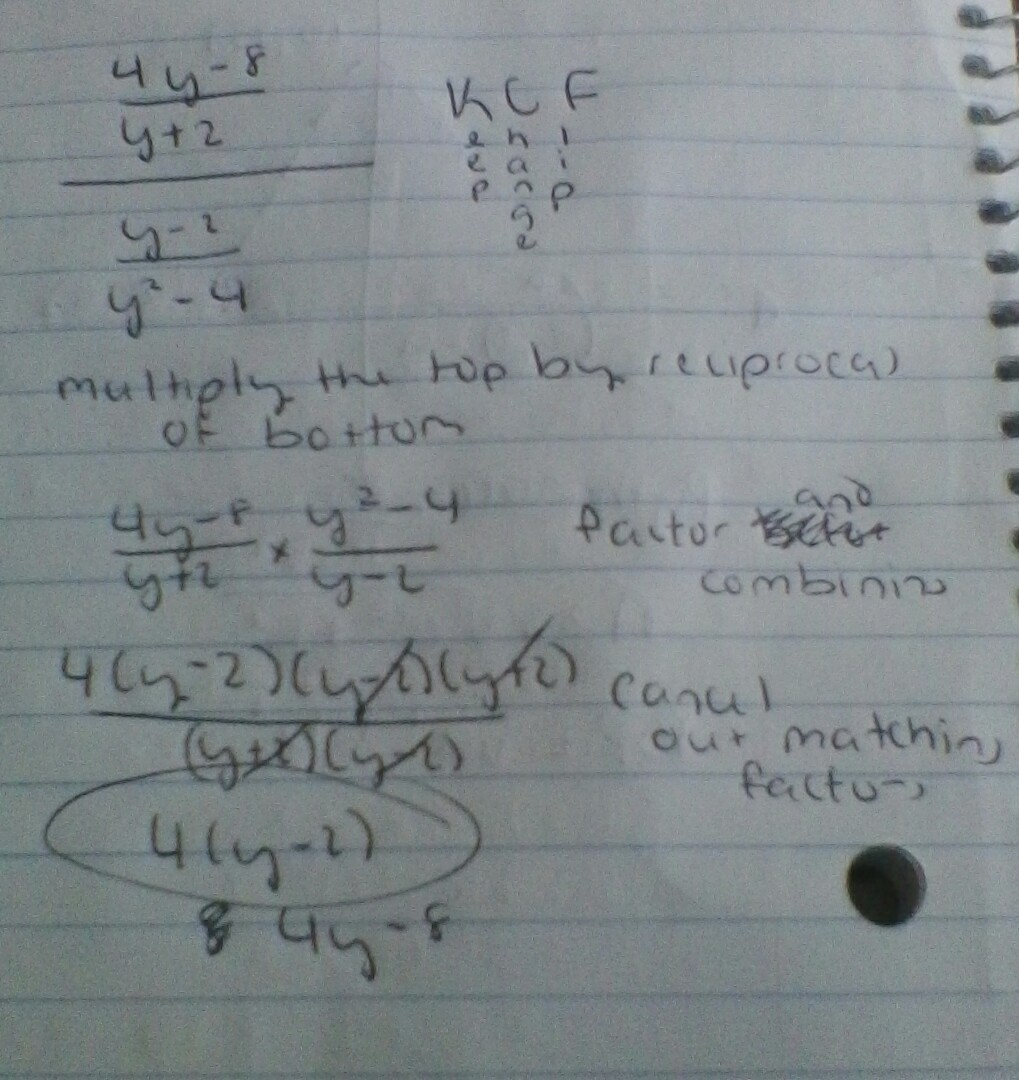 4y-8
y+2
y-2
y²-4
K C F
e h l
e a i
p n p
g
e
multiply the top by reciprocal
of bottom
4y-8 × y²-4
y+2 y-2
factor and
combining
4(y-2)(y-2)(y+2)
(y+2)(y-2)
Cancel
out matching
factors
4(y-2)
4y-8